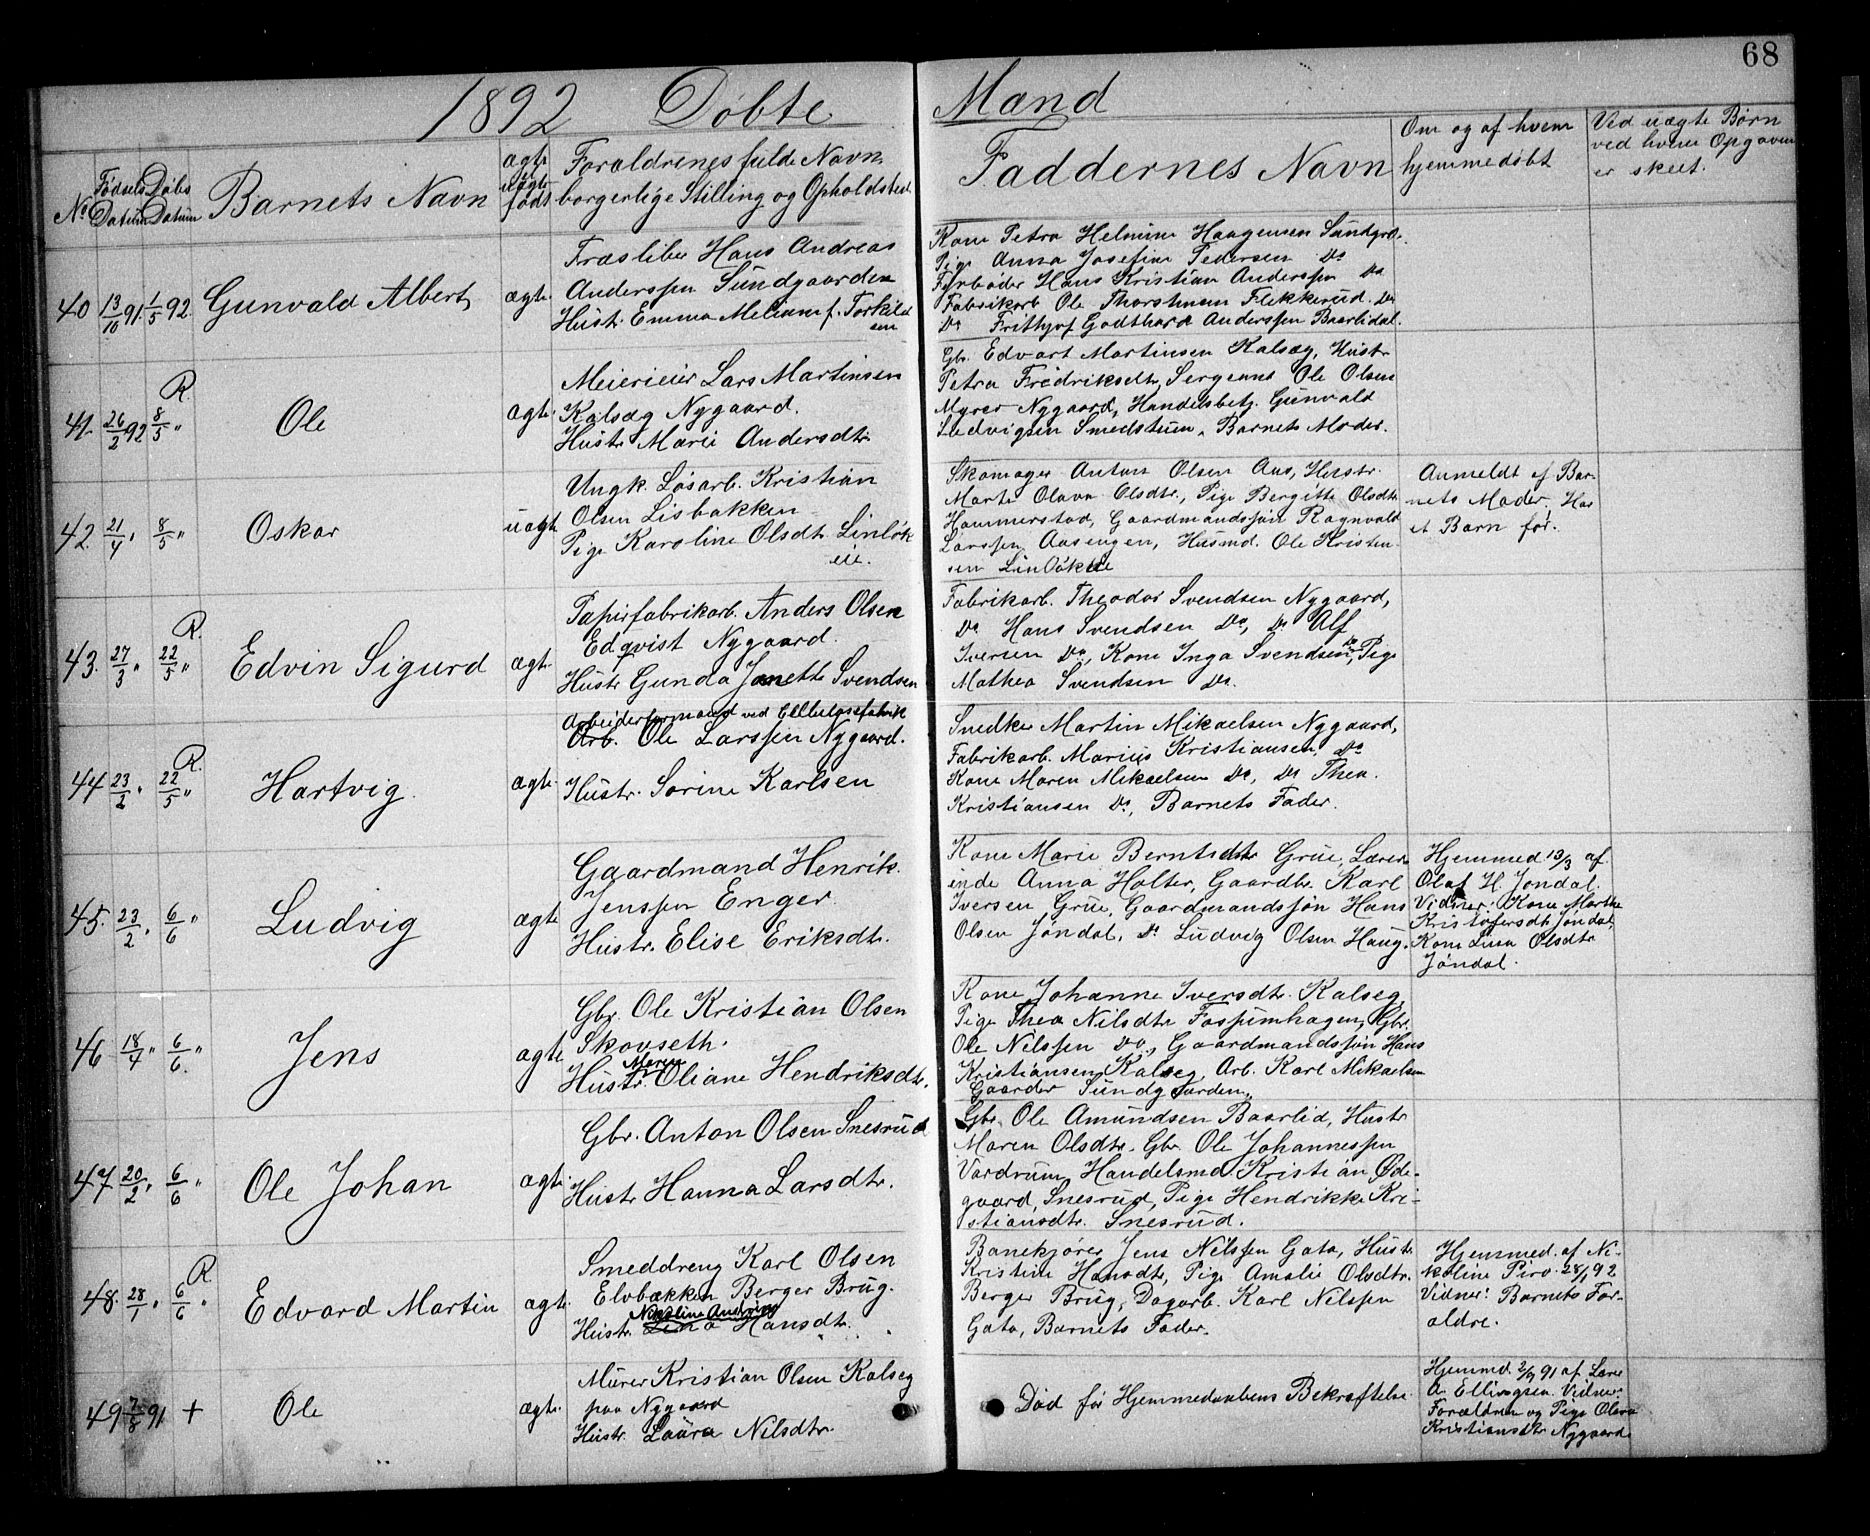 68
1892 Døbte Mænd
No
Fødsels Datum
Døbs Datum
Barnets Navn
ægte uægte født
Forældrenes fulde Navn
borgerlige Stilling og Opholdsted
Faddernes Navn
Om og af hvem
hjemmedøbt
Ved uægte Børn
ved hvem Opgaven
er skeet.
40 13/10 91. 1/5 92. Gunvald Albert ægte
Træsliber Hans Andreas
Anderssen Sundgaarden
Hustr. Emma Meliam f. Torkild
sen
Kone Petra Helmine Haagensen Sundgrd.
Pige Anna Josefine Pedersen Do
Fyrbøder Hans Kristian Anderssen Do
Fabrikarb Ole Thorstensen Flekkerud. Do
Do Frithjof Godthard Anderssen Baarlidal.
41. 26/2 92 8/5 " R. Ole ægte.
Meierieier Lars Martinsen
Kalsæg Nygaard.
Hustr Marie Andersdtr
Gbr. Edvart Martinsen Kalsæg, Hustr
Petra Fredriksdtr, Sergeant Ole Olsen
Myrer Nygaard, Handelsbetj. Gunvald
Ludvigsen Smedstuen, Barnets Moder.
42. 21/4 " 8/5 " Oskar uægte
Ungk. Løsarb. Kristian
Olsen Lisbakken
Pige Karoline Olsdt. Linløk
eie.
Skomager Anton Olsen Aas, Hustr.
Marte Olava Olsdtr., Pige Bergitte Olsdtr
Hammerstad, Gaardmandssøn Ragnvald
Larssen Aasengen, Husmd. Ole Kristen-
sen Linløkeie
Anmeldt af Bar-
nets Moder. Har
et Barn før.
43. 27/3 " 22/5 " R. Edvin Sigurd ægte.
Papirfabrikarb. Anders Olsen
Edqvist Nygaard.
Hustr Gunda Janette Svendsen
Fabrikarb. Theodor Svendsen Nygaard,
Do Hans Svendsen Do, Do Alf
Iversen Do, Kone Inga Svendsen Do, Pige
Mathea Svendsen Do.
44 23/2 " 22/5 " R. Hartvig. ægte.
Arbeiderformand ved Cellulosefabrik
Arb. Ole Larssen Nygaard.
Hustr. Sorine Karlsen
Snedker Martin Mikaelsen Nygaard,
Fabrikarb. Marius Kristiansen, Do
Kone Maren Mikaelsen Do, Do Thea.
Kristiansen Do, Barnets Fader.
45. 23/2 " 6/6 " Ludvig ægte
Gaardmand Henrik.
Jenssen Enger
Hustr. Elise Eriksdtr.
Kone Marie Berntsdtr Grue, Lærer-
inde Anna Holter, Gaardbr. Karl
Iversen Grue, Gaardmandssøn Hans
Olsen Jøndal, Do Ludvig Olsen Haug.
Hjemmed 13/3 af
Olaf H. Jøndal.
Vidner: Kone Marthe
Kristofersdt Jøndal,
Kone Lina Olsdtr
Jøndal.
46 18/4 " 6/6 " Jens ægte
Gbr. Ole Kristian Olsen
Skovseth.
Maren
Hustr. Oliane Hendriksdtr.
Kone Johanne Iversdtr. Kalseg,
Pige Thea Nilsdtr Fossumhagen, Gbr.
Ole Nilssen Do, Gaardmandssøn Hans
Kristiansen Kalseg, Arb. Karl Mikaelsen
Gaarder Sundgaarden.
47 20/2 " 6/6 " Ole Johan ægte.
Gbr. Anton Olsen Snesrud
Hustr Hanna Larsdtr.
Gbr. Ole Amundsen Baarlid, Hustr
Maren Olsdtr. Gbr Ole Johannessen
Vardrum, Handelsmd Kristian Øde-
gaard, Snesrud, Pige Hendrikke Kri-
stiansdtr. Snesrud.
48. 28/1 " 6/6 " R. Edvard Martin ægte.
Smeddreng Karl Olsen
Elvbakken Berger Brug.
Nikoline Andrine
Hustr. Lina Hansdtr.
Banekjører Jens Nilssen Gata, Hustr
Kristine Hansdtr, Pige Amalie Olsdtr.
Berger Brug, Dagarb. Karl Nilssen
Gata, Barnets Fader.
Hjemmed. af Ni-
koline Piro. 28/1 92
Vidner: Barnets For-
ældre.
49 91 + Ole ægte.
Murer Kristian Olsen Kalseg
paa Nygaard
Hustr. Laura Nilsdtr.
Død før Hjemmedaabens Bekræftelse
Hjemmd. 91 af Lærer
A. Ellingsen. Vidner:
Forældrene og Pige Olava
Kristiansdtr Nygaard